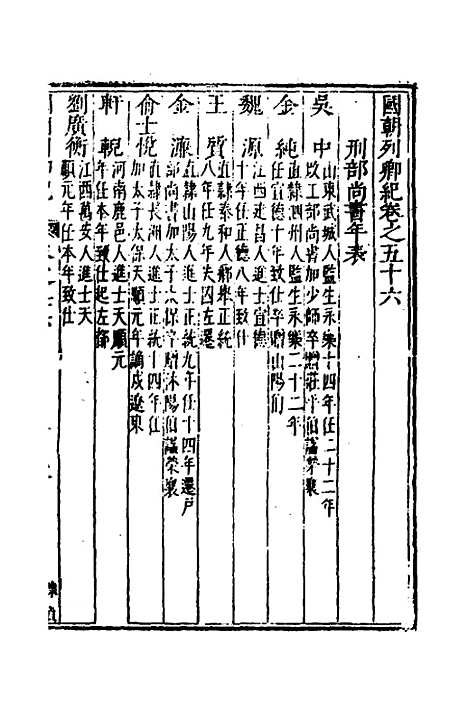 國朝列卿紀卷之五十六
刑部尚書年表
吳中 山東武城人監生永樂十四年任二十二年
改工部尚書加少師卒贈茌平伯謚榮襄
金純 直隸泗州人監生永樂二十二年
任宣德十年致仕卒贈山陽伯
魏源 江西建昌人進士宣德
十年任正德八年致仕
王質 直隸泰和人鄉舉正統
八年任九年失囚左遷
金濂 直隸山陽人進士正統九年任十四年遷戶
部尚書加太子太保卒贈沐陽伯謚榮襄
俞士悅 直隸長洲人進士正統十四年任
加太子太保天順元年謫戍遼東
軒輗 河南鹿邑人進士天順元
年任本年致仕起左都
劉廣衡 江西萬安人進士天
順元年任本年致仕